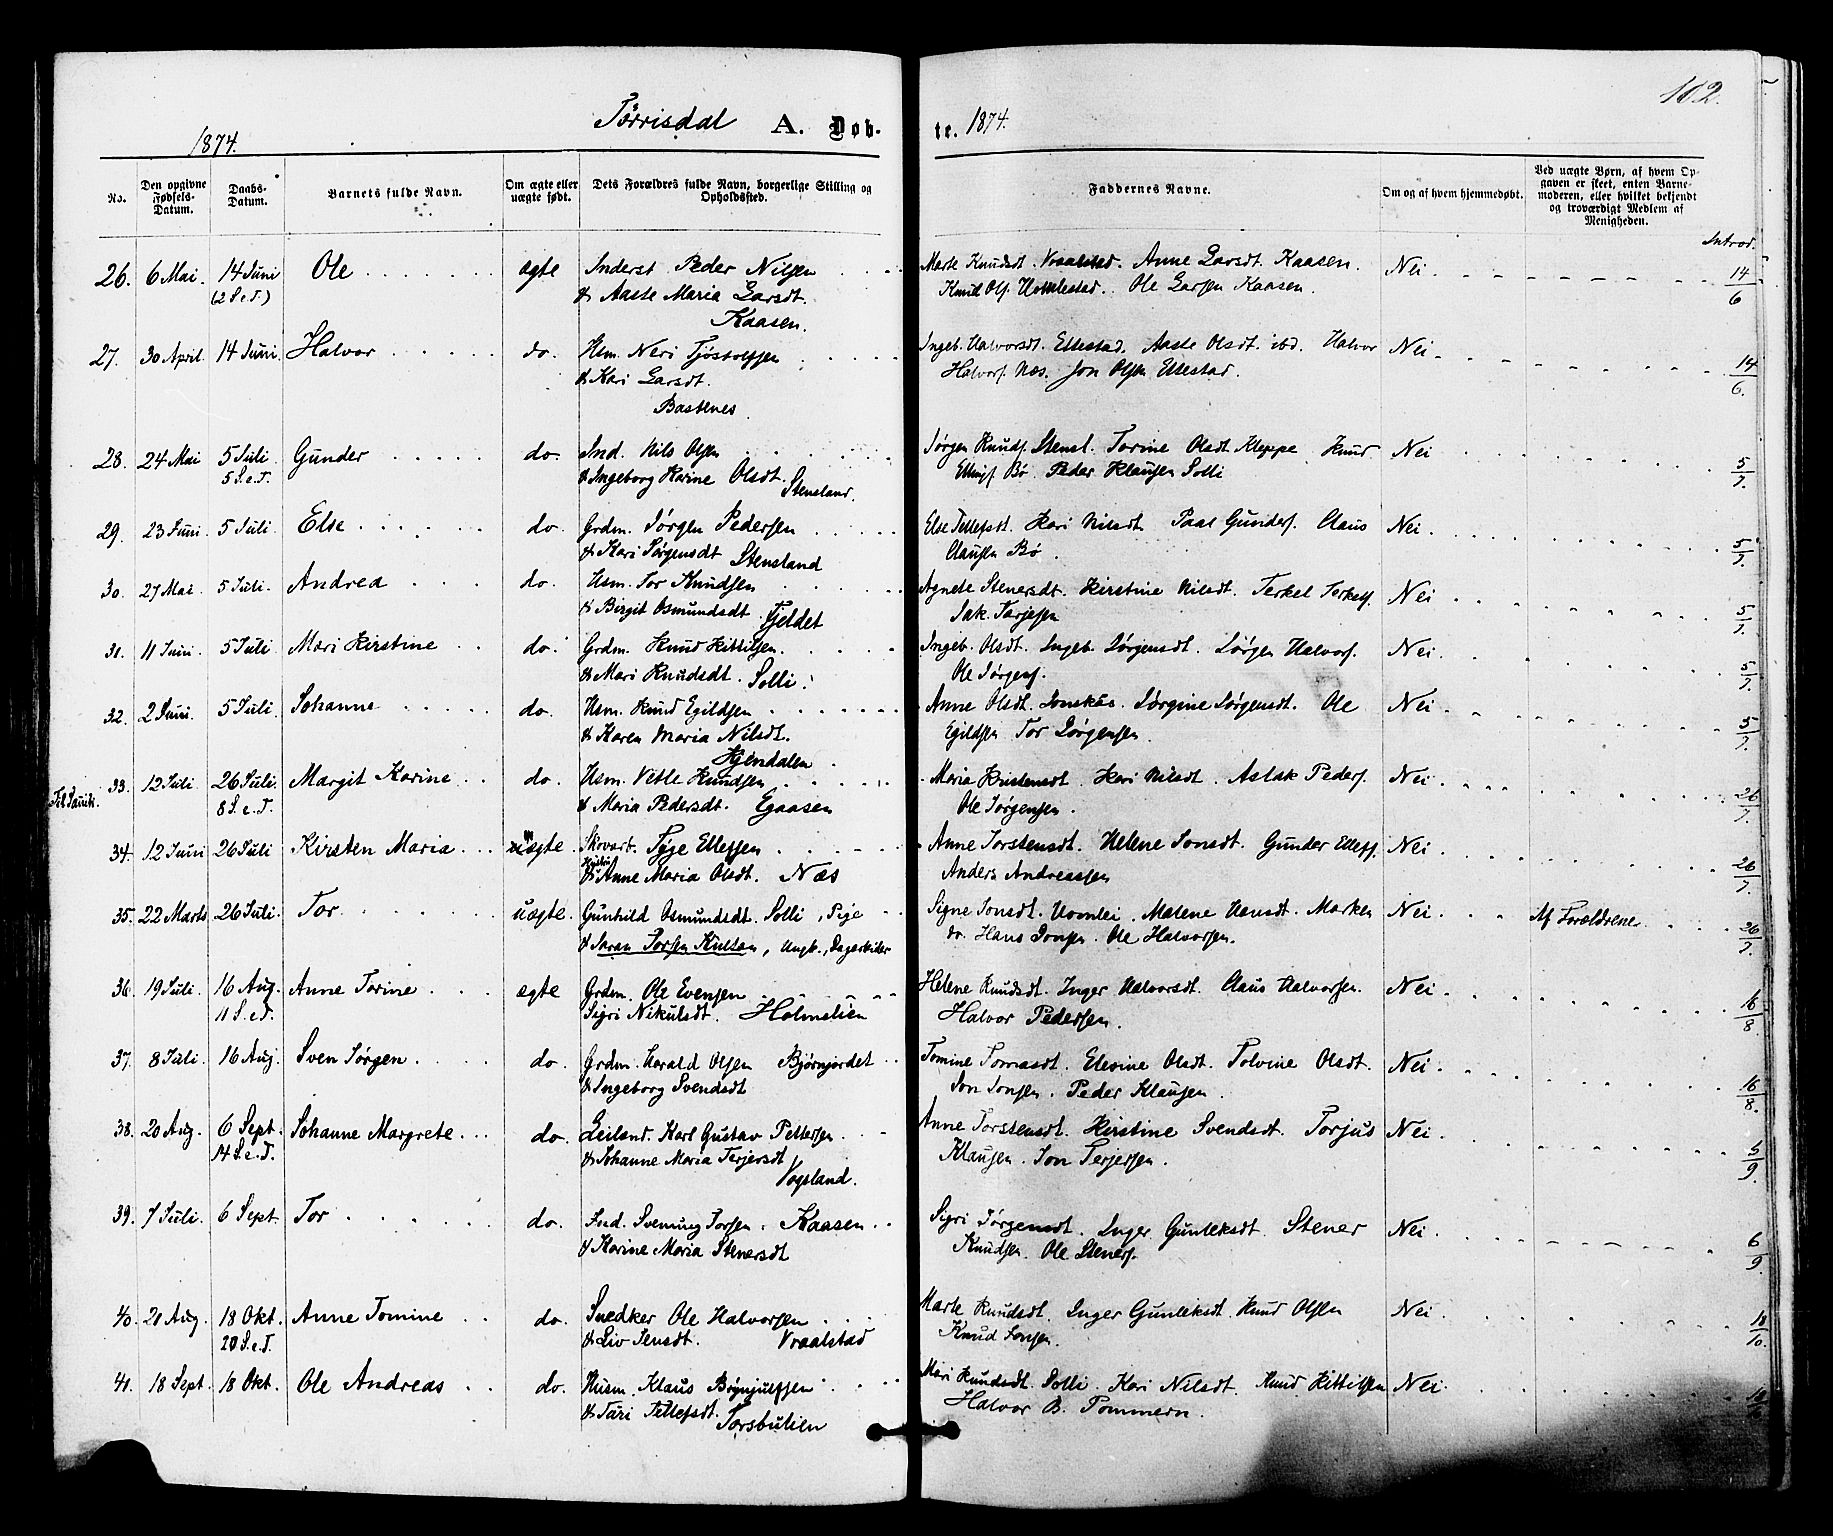 102.
Tørrisdal A. Døb- te. 1874.
1874.
No. Den opgivne Fødsels-Datum. Daabs-Datum. Barnets fulde Navn. Om ægte eller uægte født. Dets Forældres fulde Navn, borgerlige Stilling og Opholdssted. Faddernes Navne. Om og af hvem hjemmedøbt. Ved uægte Børn, af hvem Opgaven er skeet, enten Barnemoderen, eller hvilket bekjendt og troværdigt Medlem af Menigheden.
Introd.
26. 6 Mai. 14 Juni Ole ægte Inderst Peder Nilsen Marte Knudsdt. Vraalstad. Anne Larsdt. Kaasen. Nei 14/6
(2 S.e.T.) & Aaste Maria Larsdt. Knud Ols. Ole Larsen Kaasen.
Kaasen.
27. 30 April. 14 Juni. Halvor do. Hsm. Neri Tjøstolfsen Ingeb. Halvorsdt. Ellestad. Aaste Olsdt. ibd. Halvor Nei. 14/6.
& Kari Larsdt. Halvors. Næs. Jon Olsen Ellestad.
Bastenes
28. 24 Mai 5 Juli Gunder do. Ind. Nils Olsen Jørgen Knuds. Stensl. Torine Olsdt. Kleppe. Knud Nei 5/7.
5 S.e.T. & Ingeborg Karine Olsdt. Ellings. Bø. Peder Klausen Solli
Stensland.
29. 23 Juni 5 Juli. Else do. Grdm. Jørgen Pedersen Else Tellefsdt. Kari Nilsdt. Paal Gunders. Claus Nei. 5/7.
& Kari Jørgensdt Stensland Clausen Bø.
30. 27 Mai. 5 Juli. Andrea do. Hsm. Tor Knudsen Agnete Stenersdt. Kirstine Nilsdt. Terkel Terkels. Nei 5/7.
& Birgit Osmundsdt. Fjeldet Isak Tarjesen
31. 11 Juni. 5 Juli Mari Kirstine do. Grdm. Knud Kittilsen. Ingeb. Olsdt. Ingeb. Jørgensdt. Jørgen Halvors. Nei. 5/7.
& Mari Knudsdt. Solli. Ole Jørgens.
32. 2 Juni. 5 Juli. Johanne do. Hsm. Knud Egildsen Anne Olsdt. Jonskås. Jørgine Jørgensdt. Ole Nei 5/7.
& Karen Maria Nilsdt. Egildsen Tor Jørgensen.
Hjendalen.
33. 12 Juli 26 Juli. Margit Karine do. Hsm. Vetle Knudsen Maria Kristensdt. Kari Nilsdt. Aslak Peders. Nei 26/7.
8 S.e.T. & Maria Pedersdt. Egaasen Ole Jørgensen.
34. 12 Juni 26 Juli Kirsten Maria ægte Skovarb. Tyge Ellefsen Anne Torstensdt. Helene Jonsdt. Gunder Ellefs. Nei. 26/7.
& Hustru Anne Maria Olsdt. Næs Anders Andreassen
35. 22 Marts 26 Juli. Tor uægte. Gunhild Osmundsdt. Solli, Pige Signe Jonsdt. Homlei. Malene Hansdt. Marken Nei. Af Forældrene. 26/7.
& Søren Torsen Kultan, Ungk., Dagarbeider do. Hans Jonsen. Ole Halvorsen.
36. 19 Juli. 16 Aug. Anne Torine ægte Grdm. Ole Evensen Helene Knudsdt. Inger Halvorsdt. Claus Halvorsen. Nei 16/8
11 S.e.T. Sigri Nikulsdt. Holmelien Halvor Pedersen.
37. 8 Juli. 16 Aug. Sven Jørgen do. Grdm. Harald Olsen Bjørnjordet Tomine Tomasdt. Elevine Olsdt. Tolvine Olsdt. Nei. 16/8.
& Ingeborg Svendsdt Jon Jonsen. Peder Klausen.
38. 20 Aug. 6 Sept. Johanne Margrete do. Leilend. Karl Gustav Pettersen Anne Torstensdt. Kirstine Svendsdt. Torjus Nei. 5/9.
14 S.e.T. & Johanne Maria Terjersdt Klausen. Jon Terjesen.
Vogsland.
39. 7 Juli. 6 Sept. Tor do. Ind. Svenung Torsen. Kaasen Sigri Jørgensdt. Inger Gunleksdt. Stener Nei. 6/9.
& Karine Maria Stenersdt Knudsen. Ole Steners.
40. 20 Aug. 18 Okt. Anne Tomine do. Snedker Ole Halvorsen Marte Knudsdt. Inger Gunleksdt. Knud Olsen Nei 18/10.
20 S.e.T. & Liv Jensdt. Vraalstad Knud Jonsen.
41. 18 Sept. 18 Okt. Ole Andreas do. Husm. Klaus Brynjulfsen Mari Knudsdt. Solli. Kari Nilsdt. Knud Kittilsen Nei.
& Tari Tellefsdt. Torsbulien Halvor B. Tommern.